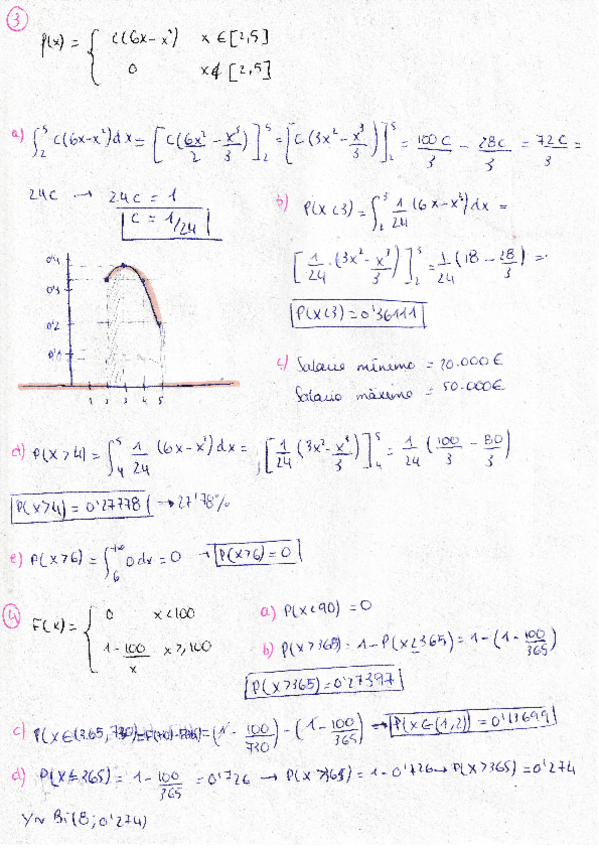 3
p(x) = { c(6x-x²) x ∈ [2,5]
0 x ∉ [2,5]
a) ∫₂⁵ c(6x-x²)dx = [c(6x²/2 - x³/3)]₂⁵ = [c(3x² - x³/3)]₂⁵ = 100c/3 - 28c/3 = 72c/3 =
24c → 24c = 1
c = 1/24
b) P(X<3) = ∫₂³ 1/24 (6x-x²)dx =
[1/24 · (3x² - x³/3)]₂³ = 1/24 (18 - 28/3) =
P(X<3) = 0'36111
0'4
0'3
0'2
0'1
1 2 3 4 5
c) Salario mínimo = 20.000€
Salario máximo = 50.000€
d) P(X>4) = ∫₄⁵ 1/24 (6x-x²)dx = [1/24 (3x² - x³/3)]₄⁵ = 1/24 (100/3 - 80/3)
P(X>4) = 0'27778 → 27'78%
e) P(X>6) = ∫₆^+∞ 0dx = 0 → P(X>6) = 0
4
F(x) = { 0 x<100
1 - 100/x x≥100
a) P(X<90) = 0
b) P(X>365) = 1 - P(X≤365) = 1 - (1 - 100/365)
P(X>365) = 0'27397
c) P(X∈(365,730) = (1 - 100/730) - (1 - 100/365) → P(X∈(1,2)) = 0'13699
d) P(X≤365) = 1 - 100/365 = 0'726 → P(X>365) = 1 - 0'726 → P(X>365) = 0'274
Y~Bi(8; 0'274)